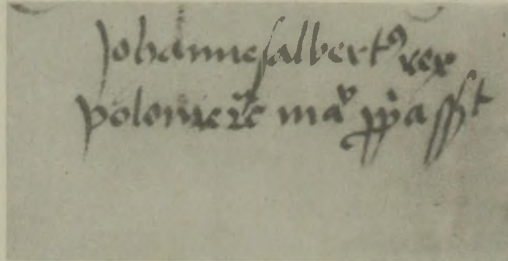 Johannesalbertꝰ rex
polonie ⁊c̄ maͮ ꝓp̄a ss̄t